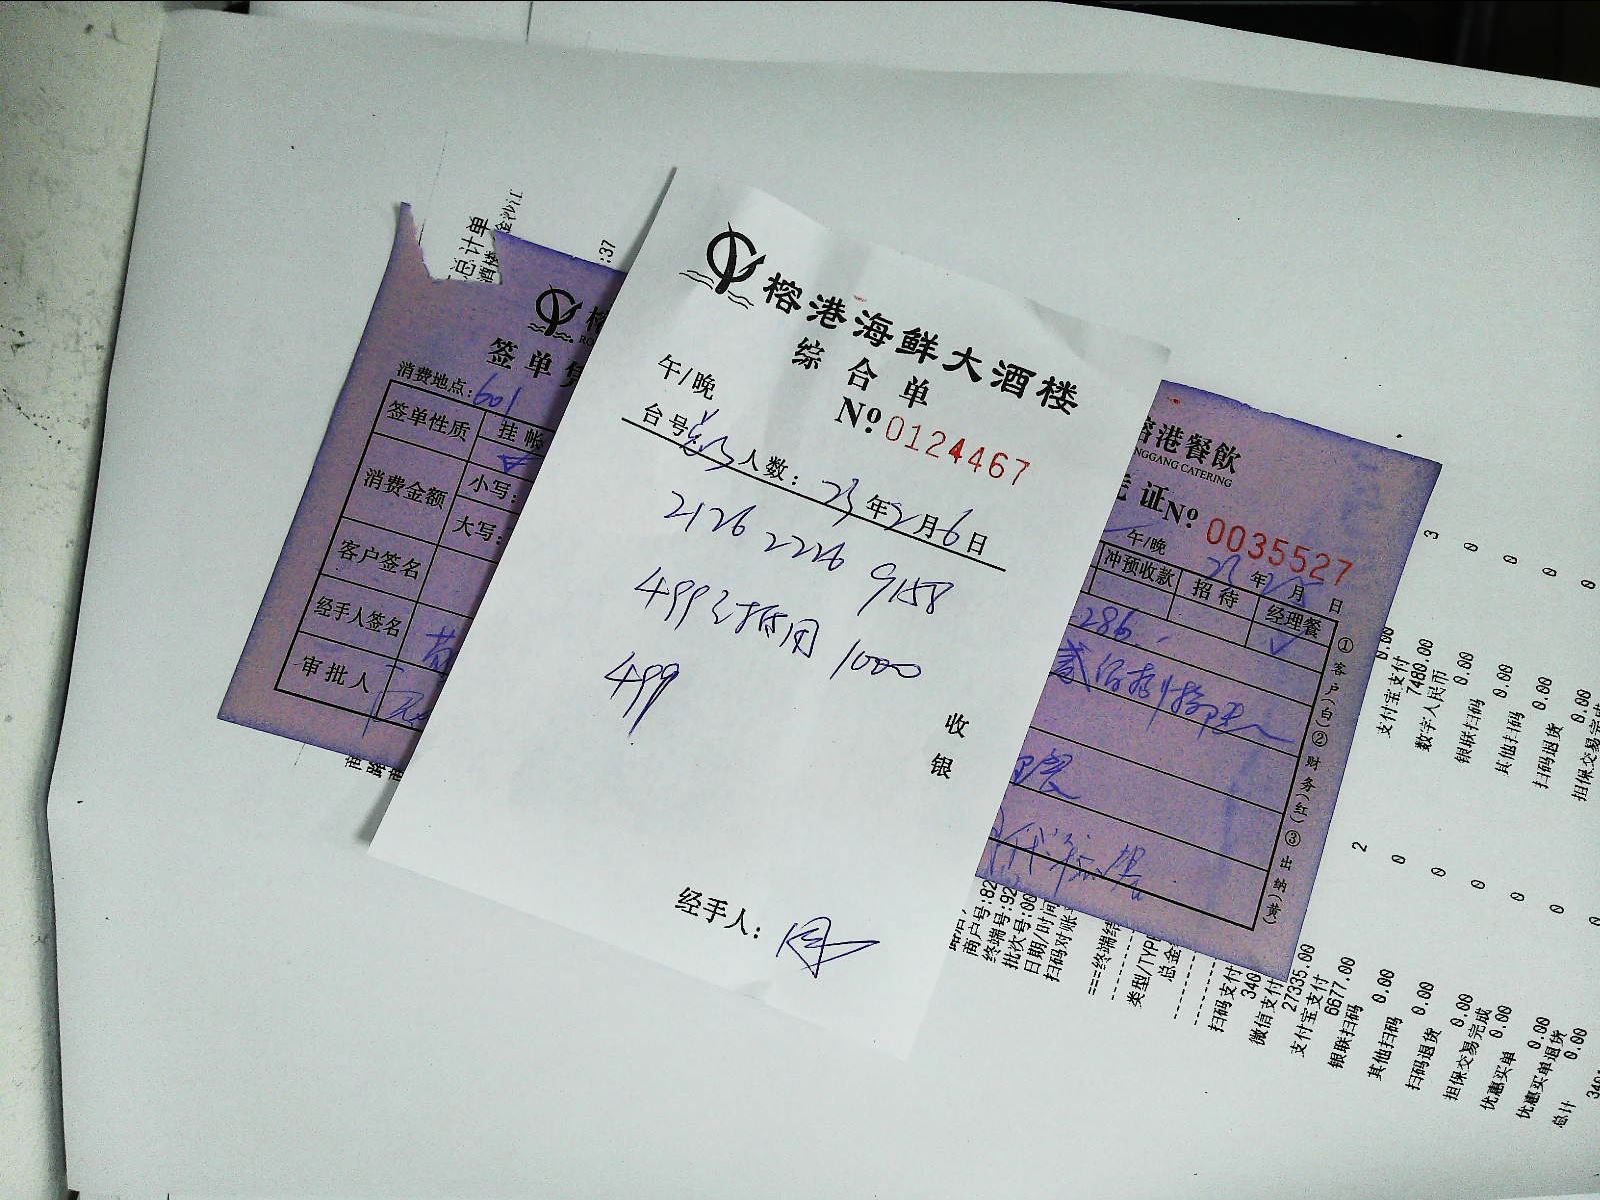 榕港海鲜大酒楼
综合单
午/晚
№0124467
台号 人数: 23年2月6日
2126 2226 9158
499 抵用 1000
499
收
银
经手人:
计单
酒楼
金沙江
:37
签单
消费地点:601
签单性质
挂帐
消费金额
小写:
大写:
客户签名
经手人签名
审批人
港餐饮
NGGANG CATERING
证№ 0035527
午/晚
年 月 日
冲预收款
招待
经理餐
286.
①客户(白)②财务(红)③出 (黄)
商户号:82
终端号:92
批次号:00
日期/时间
扫码对账
===终端结
类型/TYPE
总金
扫码支付
340
微信支付
27335.00
支付宝支付
6677.00
银联扫码
0.00
其他扫码
0.00
扫码退货
0.00
担保交易完成
0.00
优惠买单
0.00
优惠买单退货
0.00
总计
340
3
0
0
0
0
0.00
支付宝支付
7480.00
数字人民币
0.00
银联扫码
0.00
其他扫码
0.00
扫码退货
0.00
担保交易完成
2
0
0
0
0
0
0